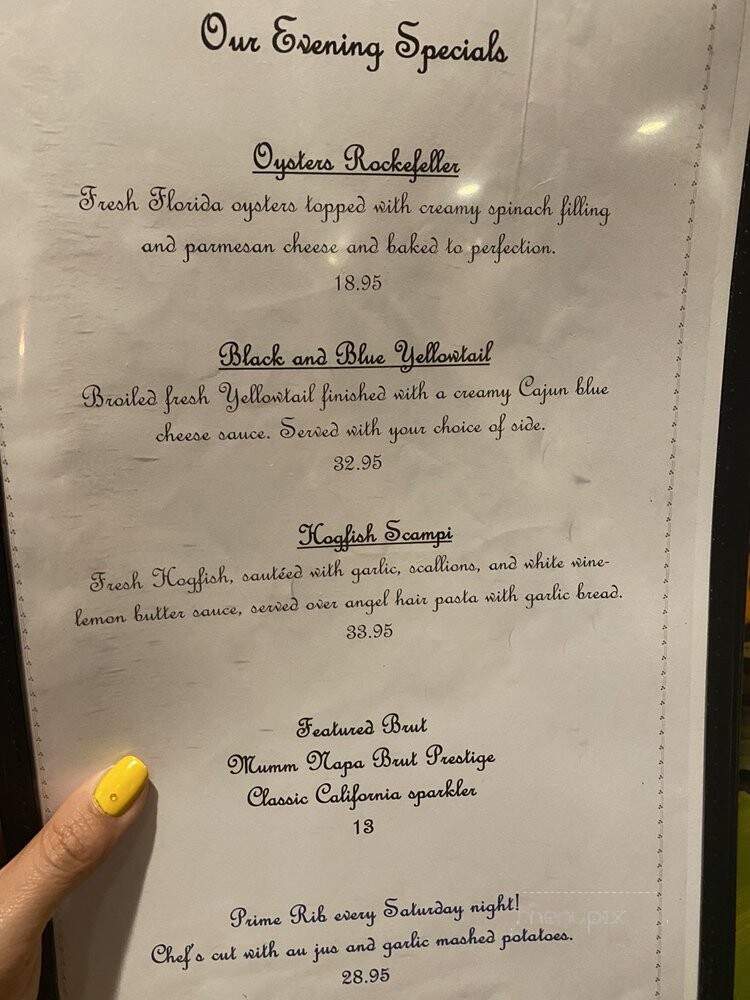 Our Evening Specials
Oysters Rockefeller
Fresh Florida oysters topped with creamy spinach filling
and parmesan cheese and baked to perfection.
18.95
Black and Blue Yellowtail
Broiled fresh Yellowtail finished with a creamy Cajun blue
cheese sauce. Served with your choice of side.
32.95
Hogfish Scampi
Fresh Hogfish, sautéed with garlic, scallions, and white wine-
lemon butter sauce, served over angel hair pasta with garlic bread.
33.95
Featured Brut
Mumm Napa Brut Prestige
Classic California sparkler
13
Prime Rib every Saturday night!
menupix
Chef's cut with au jus and garlic mashed potatoes.
28.95